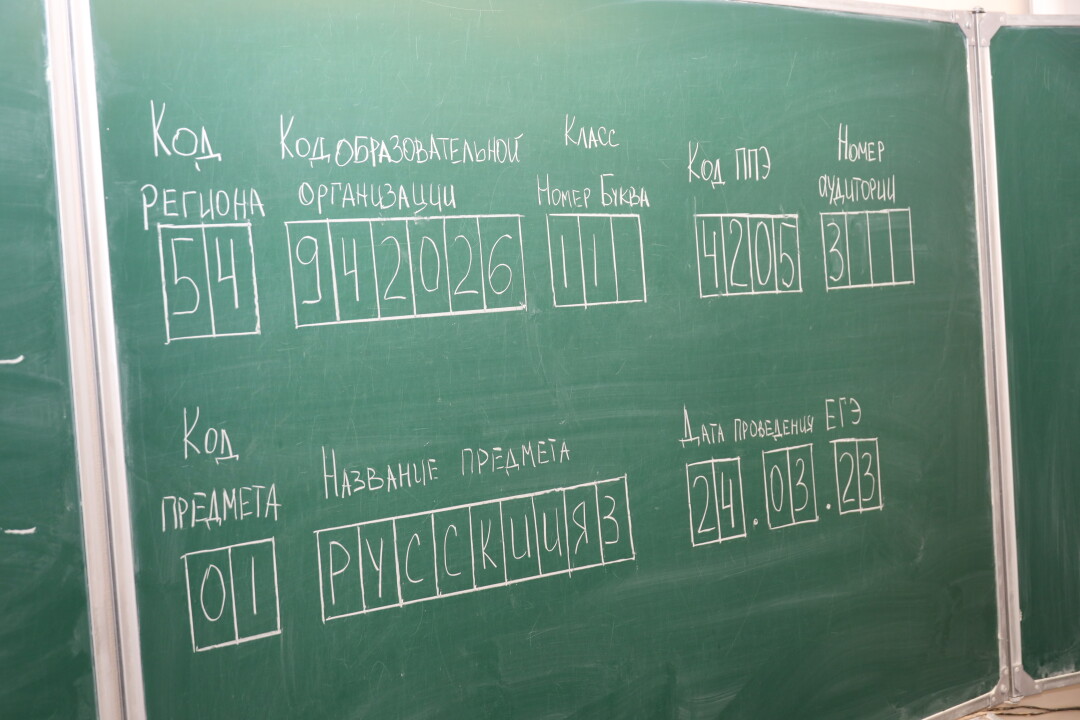 Код
региона
54
Код образовательной
организации
942026
Класс
Номер Буква
11
Код ППЭ
4205
Номер
аудитории
3
Код
предмета
01
Название предмета
РУССКИИЯЗ
Дата проведения ЕГЭ
24.03.23